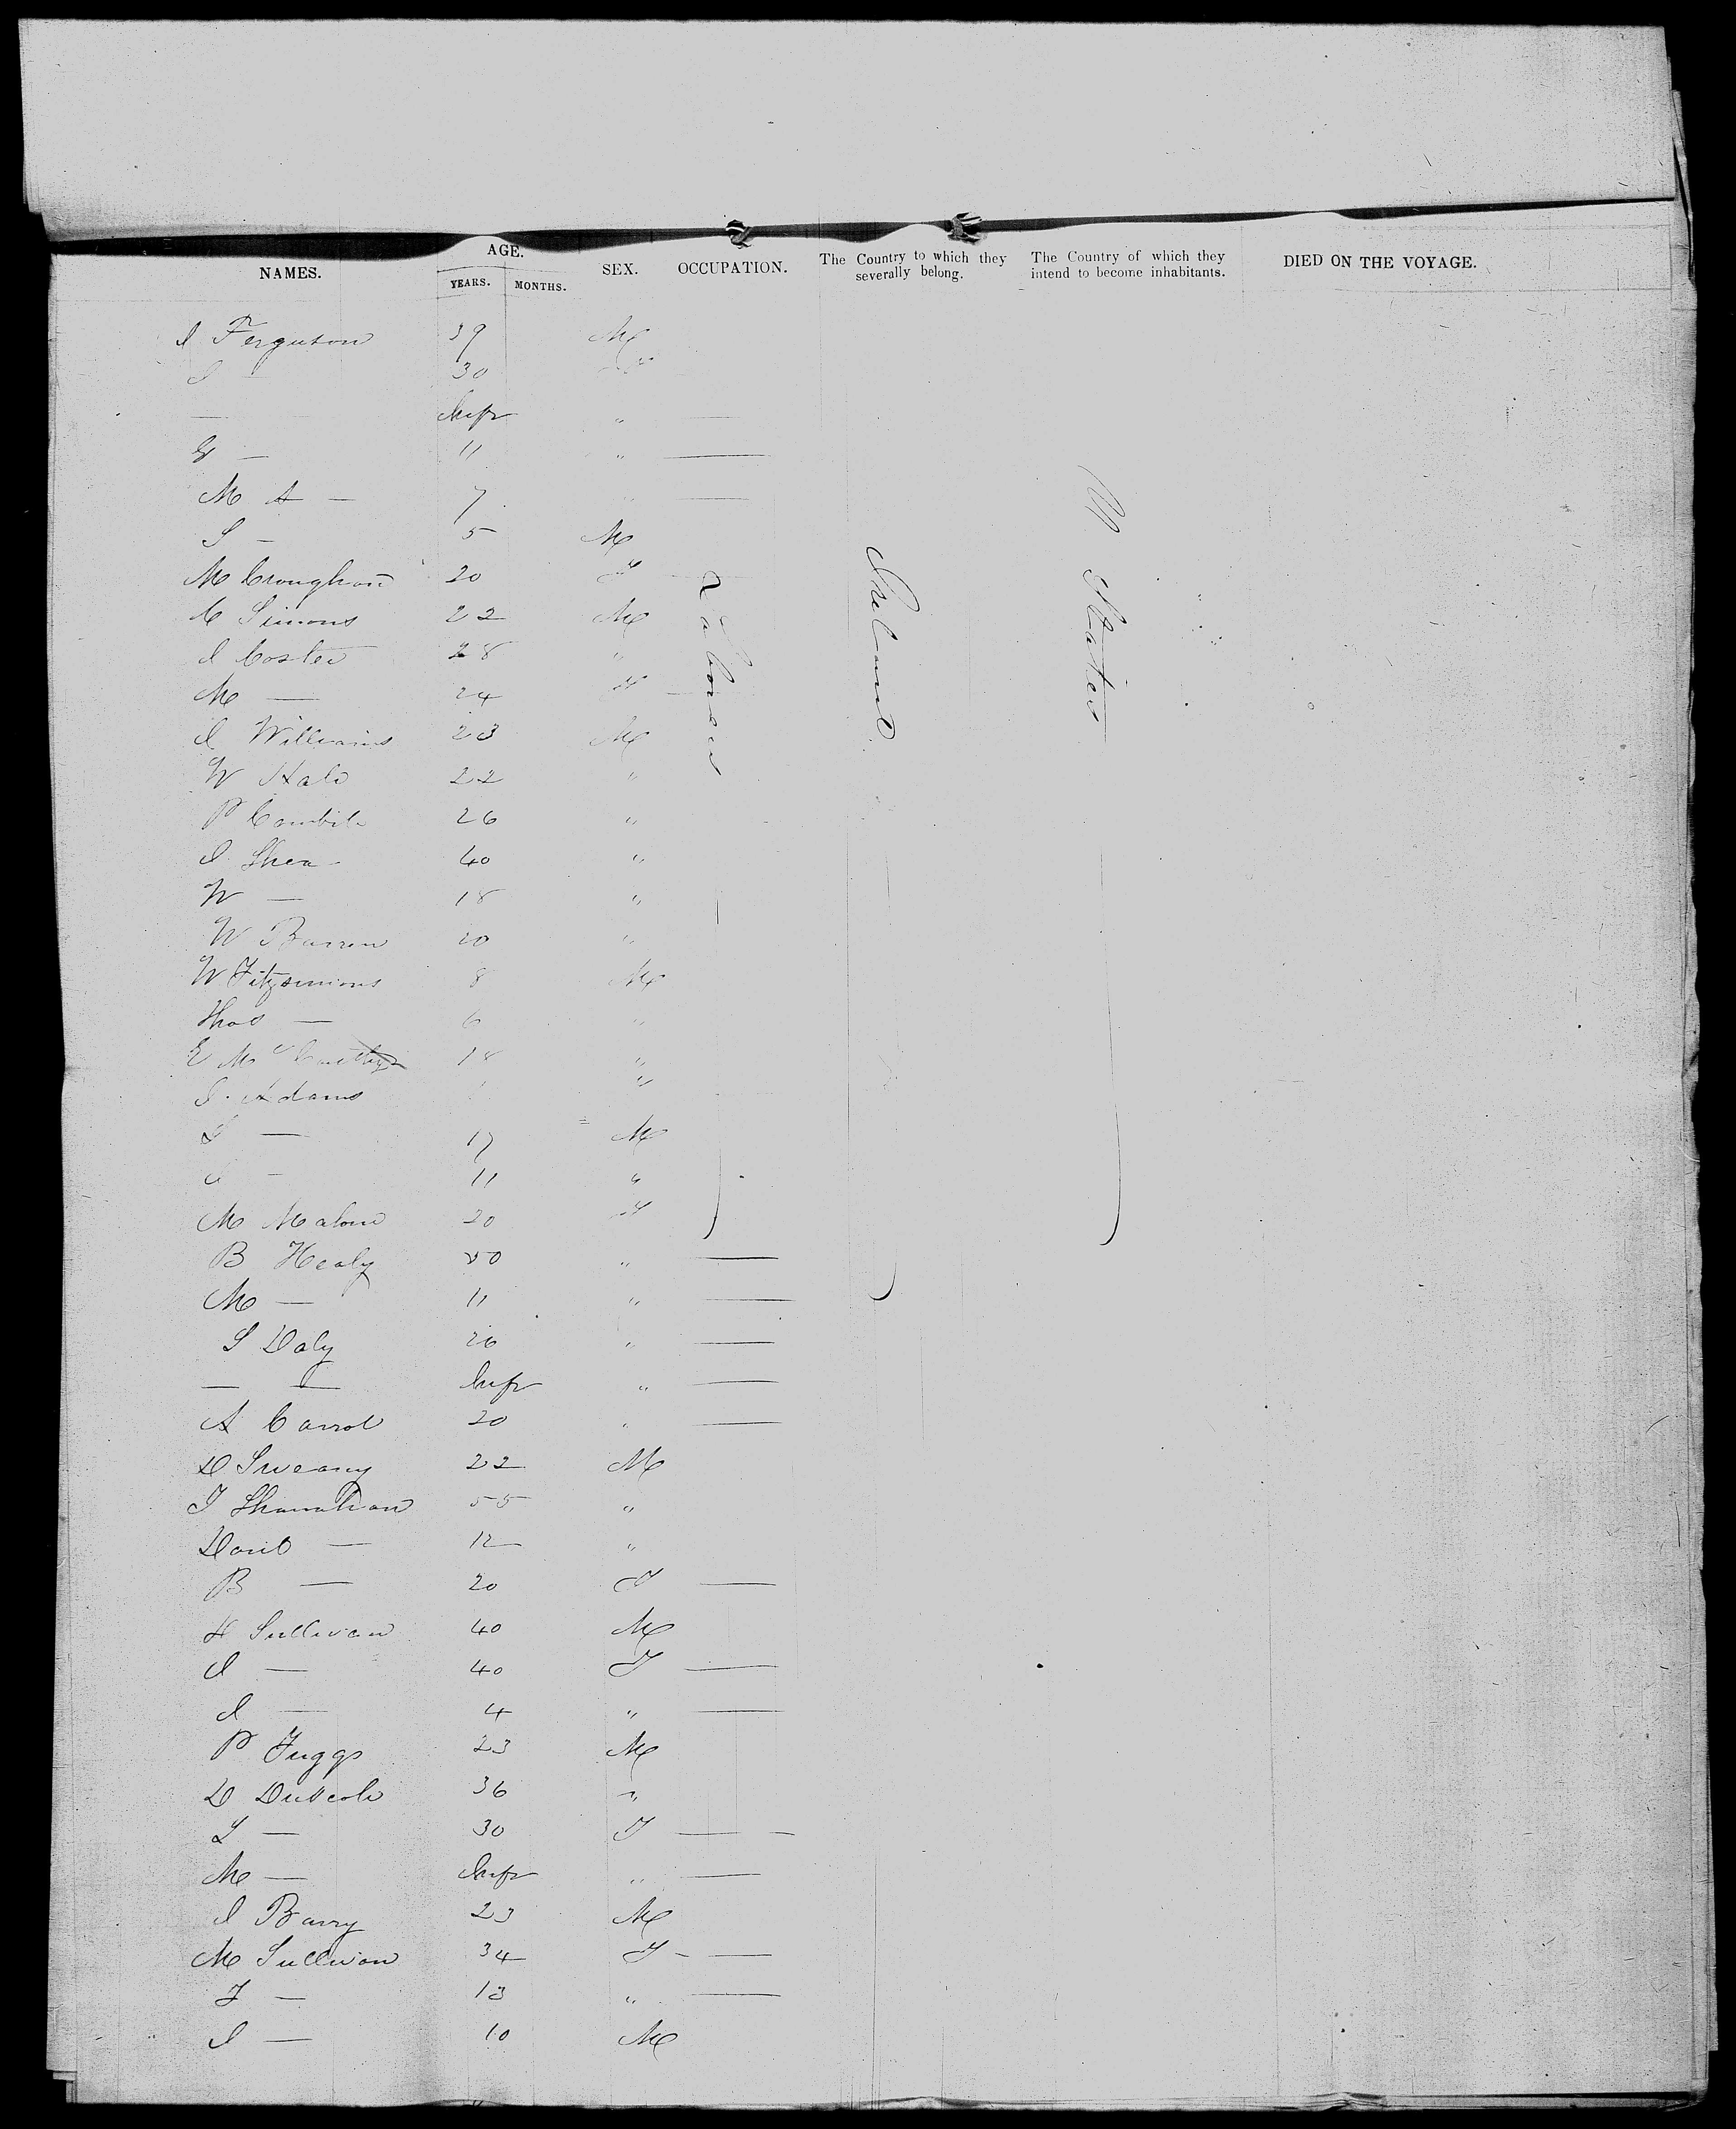 NAMES. AGE. YEARS. MONTHS. SEX. OCCUPATION. The Country to which they severally belong. The Country of which they intend to become inhabitants. DIED ON THE VOYAGE.
J Ferguson 39 M
30
— Infr " —
— 11 " —
M A — 7 —
S — 5 M
M Croughan 20
Simons 22 M
J Coster 28 "
M — 24
J Williams 23 M
W Hale 22 "
P 26 "
J Shea 40 "
W — 18 "
W Barron 20 "
W Fitzsimons 8 M
Thos — 6 "
E McCarthy 18 "
J. Adams "
— 17 M
— 11 "
M Malone 20
B Healy 50 " —
M — 11 " —
S Daly 26 " —
— — Infr " —
A Carrol 20 " —
D Sweany 22 M
J Shanahan 55 "
David — 12 "
B — 20 F —
H Sullivan 40 M
J — 40 F —
J — 4 " —
P 23 M
D Driscole 36 "
L — 30 F — —
M — Infr " —
J Barry 23 M
M Sullivan 34 F —
J — 13 " —
J — 10 M
Laborers
Ireland
U States